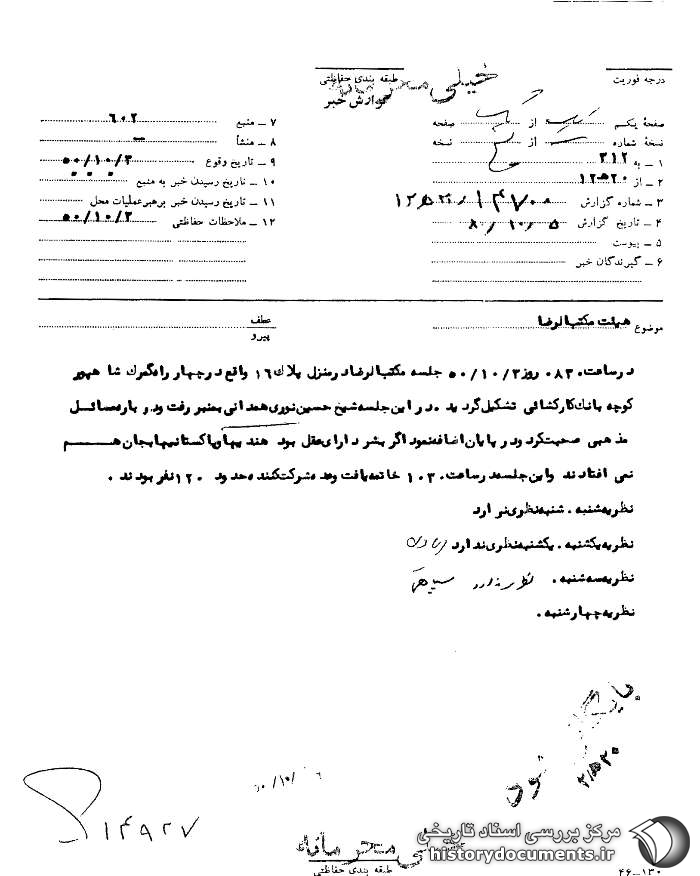 درجه فوریت
خیلی محرمانه
طبقه بندی حفاظتی
گزارش خبر
صفحهٔ یکم یک از یک صفحه
نسخهٔ شماره از نسخه
۱ – به ۳۱۲
۲ – از ۱۲ﻫ۲۰
۳ – شماره گزارش
۴ – تاریخ گزارش ۵۰/۱۰/۵
۵ – پیوست
۶ – گیرندگان خبر
۷ – منبع ۶۰۲
۸ – منشأ –
۹ – تاریخ وقوع ۵۰/۱۰/۲
۱۰ – تاریخ رسیدن خبر به منبع
۱۱ – تاریخ رسیدن خبر برهبر عملیات محل
۱۲ – ملاحظات حفاظتی
موضوع هیئت مکتب الرضا
عطف
پیرو
در ساعت ۰۸۳۰ روز ۵۰/۱۰/۲ جلسه مکتب الرضا در منزل پلاک ۱۶ واقع در چهار راه گمرک شاهپور
کوچه بانک کارگشائی تشکیل گردید ۰ در این جلسه شیخ حسین نوری همدانی بمنبر رفت و درباره مسائل
مذهبی صحبت کرد و در پایان اضافه نمود اگر بشر دارای عقل بود هندیها و پاکستانیها بجان هم
نمی افتادند و این جلسه در ساعت ۱۰۳۰ خاتمه یافت و عده شرکت کننده حدود ۱۲۰ نفر بودند ۰
نظریه شنبه ۰ شنبه نظری ندارد
نظریه یکشنبه ۰ یکشنبه نظری ندارد
نظریه سه شنبه ۰ نظری ندارد
نظریه چهارشنبه ۰
بایگانی شود
۱۴۹۲۷
خیلی محرمانه
طبقه بندی حفاظتی
۴۶–۱۳۰
مرکز بررسی اسناد تاریخی
historydocuments.ir